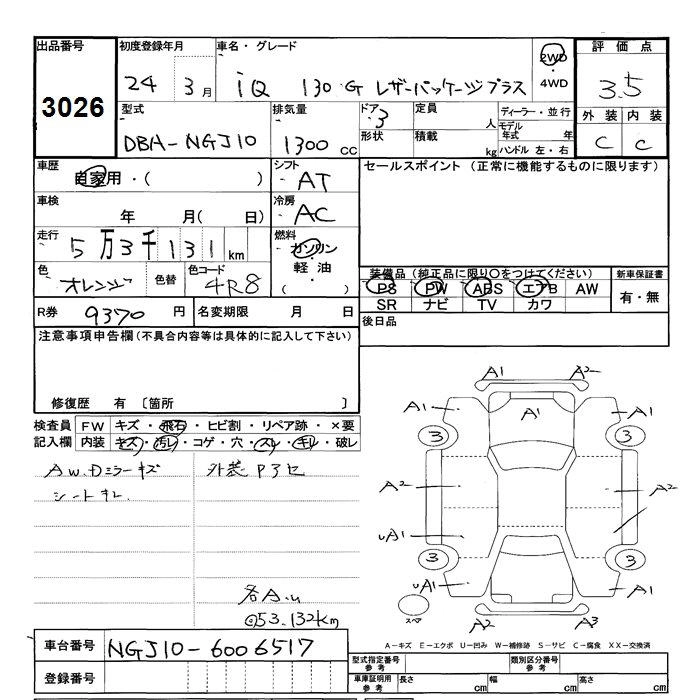 出品番号 初度登録年月 車名・グレード 評価点
3026 24 3月 iQ 130 G レザーパッケージプラス 2WD ・ 4WD 3.5
型式 排気量 ドア 3 定員 人 ディーラー・並行 外装 内装
DBA-NGJ10 1300 CC 形状 積載 kg モデル年式 年 ハンドル 左・右 C C
車歴 自家用・( ) シフト AT セールスポイント (正常に機能するものに限ります)
車検 年 月( 日) 冷房 AC
走行 5万3千131km 燃料 ガソリン 軽油 ( ・ )
色 オレンジ 色替 色コード 4R8 装備品 (純正品に限り〇をつけてください) 新車保証書
PS PW ABS エアB AW 有・無
SR ナビ TV カワ
R券 9370 円 名変期限 月 日 後日品
注意事項申告欄(不具合内容等は具体的に記入して下さい)
修復歴 有 〔箇所 〕
検査員 FW キズ・飛石・ヒビ割・リペア跡・×要
記入欄 内装 キズ・汚レ・コゲ・穴・スレ・キレ・破レ
AW.Dミラーキズ 外装P3セ
シートキレ
各A.u
◎53.132km
A1 A2
A1 A1 A1
3 3
A2 A2
uA1 A1
3 3
uA1 A1
スペア A2 A3
A-キズ E-エクボ U-凹み W-補修跡 S-サビ C-腐食 XX-交換済
車台番号 NGJ10-6006517
登録番号
型式指定番号 参考 類別区分番号 参考
車庫証明用 参考 長さ cm 幅 cm 高さ cm